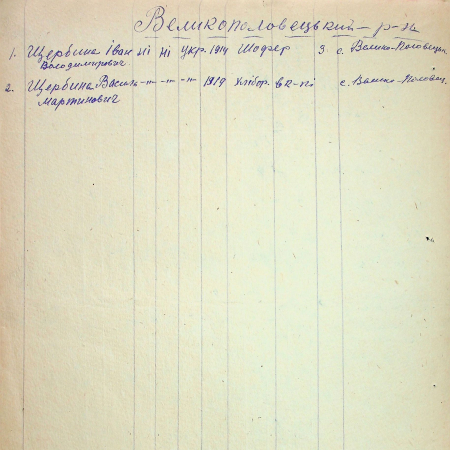 Великополовецький р-н
1. Щербина Іван ні ні укр. 1914 Шофер 3. с. Велико-Половецьк.
Володимирович
2. Щербина Василь -"- -"- -"- 1919 хлібор. с. Велико-Половец.
Мартинович